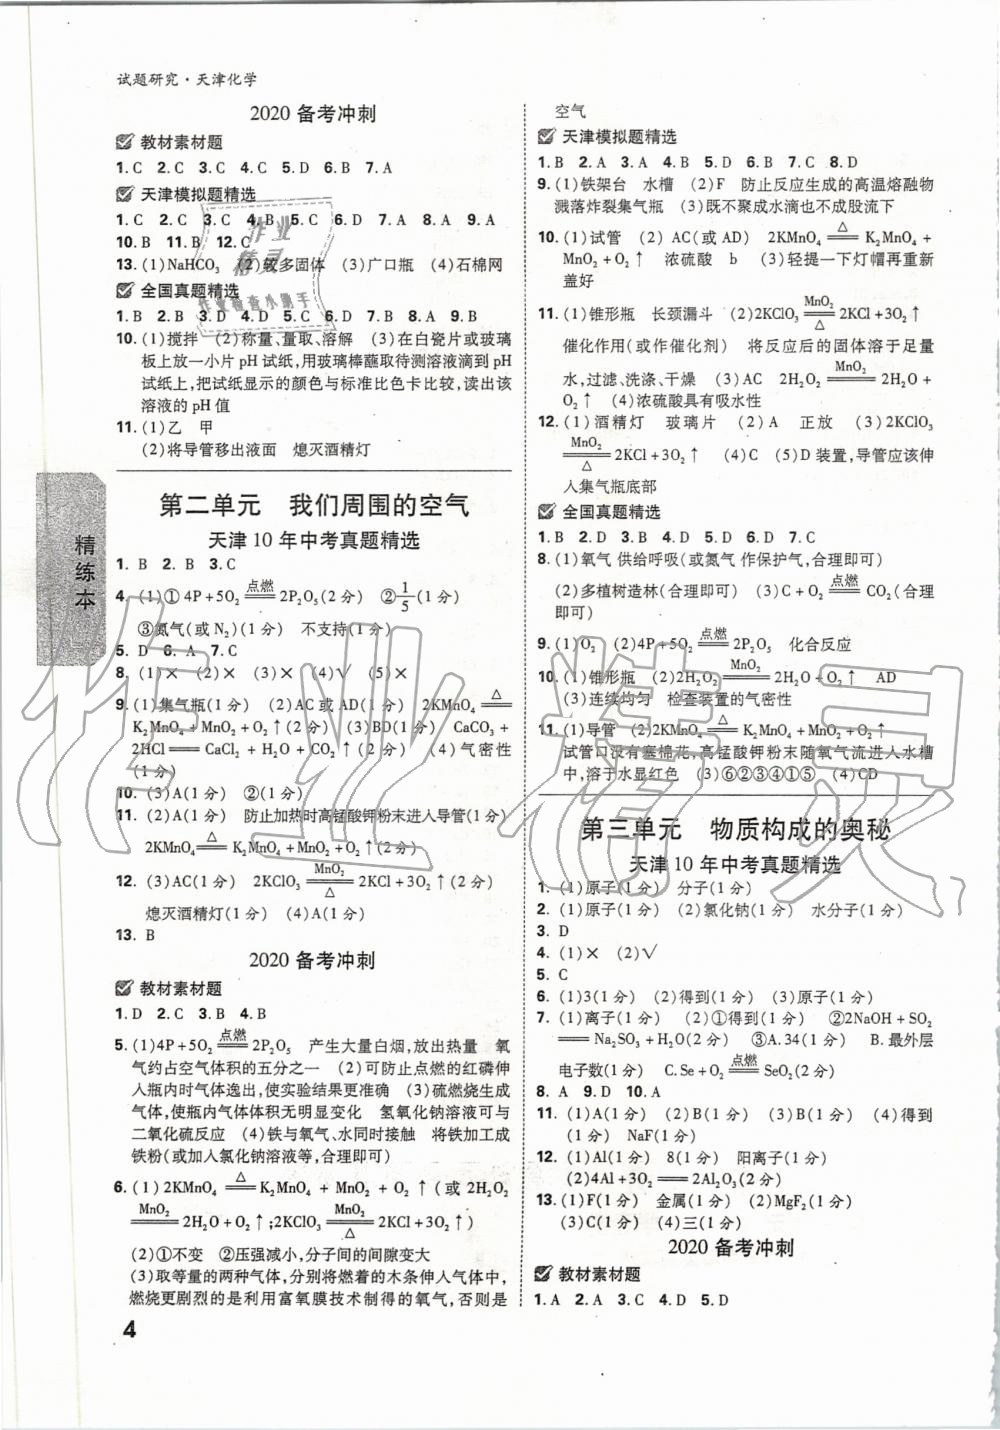 试题研究·天津化学
2020 备考冲刺
教材素材题
1. C 2. C 3. C 4. C 5. D 6. B 7. A
天津模拟题精选
1. C 2. C 3. C 4. B 5. C 6. D 7. A 8. A 9. A
10. B 11. B 12. C
13. (1)NaHCO₃ (2)较多固体 (3)广口瓶 (4)石棉网
全国真题精选
1. B 2. B 3. D 4. A 5. C 6. D 7. B 8. A 9. B
10. (1)搅拌 (2)称量、量取、溶解 (3)在白瓷片或玻璃
板上放一小片 pH 试纸,用玻璃棒蘸取待测溶液滴到 pH
试纸上,把试纸显示的颜色与标准比色卡比较,读出该
溶液的 pH 值
11. (1)乙 甲
(2)将导管移出液面 熄灭酒精灯
第二单元 我们周围的空气
天津 10 年中考真题精选
1. B 2. B 3. C
4. (1)① 4P+5O₂ ══点燃══ 2P₂O₅(2 分) ②1/5(1 分)
③氮气(或 N₂)(1 分) 不支持(1 分)
5. D 6. A 7. C
8. (1)× (2)× (3)× (4)√ (5)×
9. (1)集气瓶(1 分) (2)AC 或 AD(1 分) 2KMnO₄ ══△══
K₂MnO₄ + MnO₂ + O₂↑(2 分) (3)BD(1 分) CaCO₃ +
2HCl ══ CaCl₂ + H₂O + CO₂↑(2 分) (4)气密性
(1 分)
10. (3)A(1 分) ②(1 分)
11. (2)A(1 分) 防止加热时高锰酸钾粉末进入导管(1 分)
2KMnO₄ ══△══ K₂MnO₄ + MnO₂ + O₂↑(2 分)
12. (3)AC(1 分) 2KClO₃ ══MnO₂/△══ 2KCl+3O₂↑(2 分)
熄灭酒精灯(1 分) (4)A(1 分)
13. B
2020 备考冲刺
教材素材题
1. D 2. C 3. B 4. B
5. (1)4P+5O₂ ══点燃══ 2P₂O₅ 产生大量白烟,放出热量 氧
气约占空气体积的五分之一 (2)可防止点燃的红磷伸
入瓶内时气体逸出,使实验结果更准确 (3)硫燃烧生成
气体,使瓶内气体体积无明显变化 氢氧化钠溶液可与
二氧化硫反应 (4)铁与氧气、水同时接触 将铁加工成
铁粉(或加入氯化钠溶液等,合理即可)
6. (1)2KMnO₄ ══△══ K₂MnO₄ + MnO₂ + O₂↑(或 2H₂O₂
══MnO₂══ 2H₂O+O₂↑;2KClO₃ ══MnO₂/△══ 2KCl+3O₂↑)
(2)①不变 ②压强减小,分子间的间隙变大
(3)取等量的两种气体,分别将燃着的木条伸入气体中,
燃烧更剧烈的是利用富氧膜技术制得的氧气,否则是
空气
天津模拟题精选
1. B 2. A 3. A 4. A 5. D 6. B 7. C 8. D
9. (1)铁架台 水槽 (2)F 防止反应生成的高温熔融物
溅落炸裂集气瓶 (3)既不聚成水滴也不成股流下
10. (1)试管 (2) AC(或 AD) 2KMnO₄ ══△══ K₂MnO₄ +
MnO₂+O₂↑ 浓硫酸 b (3)轻提一下灯帽再重新
盖好
11. (1)锥形瓶 长颈漏斗 (2)2KClO₃ ══MnO₂/△══ 2KCl+3O₂↑
催化作用(或作催化剂) 将反应后的固体溶于足量
水,过滤、洗涤、干燥 (3)AC 2H₂O₂ ══MnO₂══ 2H₂O+
O₂↑ (4)浓硫酸具有吸水性
12. (1)酒精灯 玻璃片 (2)A 正放 (3)2KClO₃
══MnO₂/△══ 2KCl+3O₂↑ (4)C (5)D 装置,导管应该伸
入集气瓶底部
全国真题精选
1. B 2. D 3. B 4. C 5. D 6. D 7. C
8. (1)氧气 供给呼吸(或氮气 作保护气,合理即可)
(2)多植树造林(合理即可) (3)C+O₂ ══点燃══ CO₂(合理
即可)
9. (1)O₂ (2)4P+5O₂ ══点燃══ 2P₂O₅ 化合反应
10. (1)锥形瓶 (2)2H₂O₂ ══MnO₂══ 2H₂O+O₂↑ AD
(3)连续均匀 检查装置的气密性
11. (1)导管 (2)2KMnO₄ ══△══ K₂MnO₄ + MnO₂ +O₂↑
试管口没有塞棉花,高锰酸钾粉末随氧气流进入水槽
中,溶于水显红色 (3)⑥②③④①⑤ (4)CD
第三单元 物质构成的奥秘
天津 10 年中考真题精选
1. (1)原子(1 分) 分子(1 分)
2. (1)原子(1 分) (2)氯化钠(1 分) 水分子(1 分)
3. D
4. (1)× (2)√
5. C
6. (1)3(1 分) (2)得到(1 分) (3)原子(1 分)
7. (1)离子(1 分) (2)①得到(1 分) ②2NaOH + SO₂
══ Na₂SO₃ + H₂O(2 分) ③A. 34(1 分) B. 最外层
电子数(1 分) C. Se + O₂ ══点燃══ SeO₂(2 分)
8. A 9. D 10. A
11. (1)A(1 分) (2)B(1 分) (3)B(1 分) (4)得到
(1 分) NaF(1 分)
12. (1)Al(1 分) 8(1 分) 阳离子(1 分)
(2)4Al +3O₂ ══ 2Al₂O₃(2 分)
13. (1)F(1 分) 金属(1 分) (2)MgF₂(1 分)
(3)C(1 分) (4)三(1 分)
2020 备考冲刺
教材素材题
1. A 2. A 3. C 4. D 5. D
精练本
4
作业精灵
作业检查小助手
作业精灵